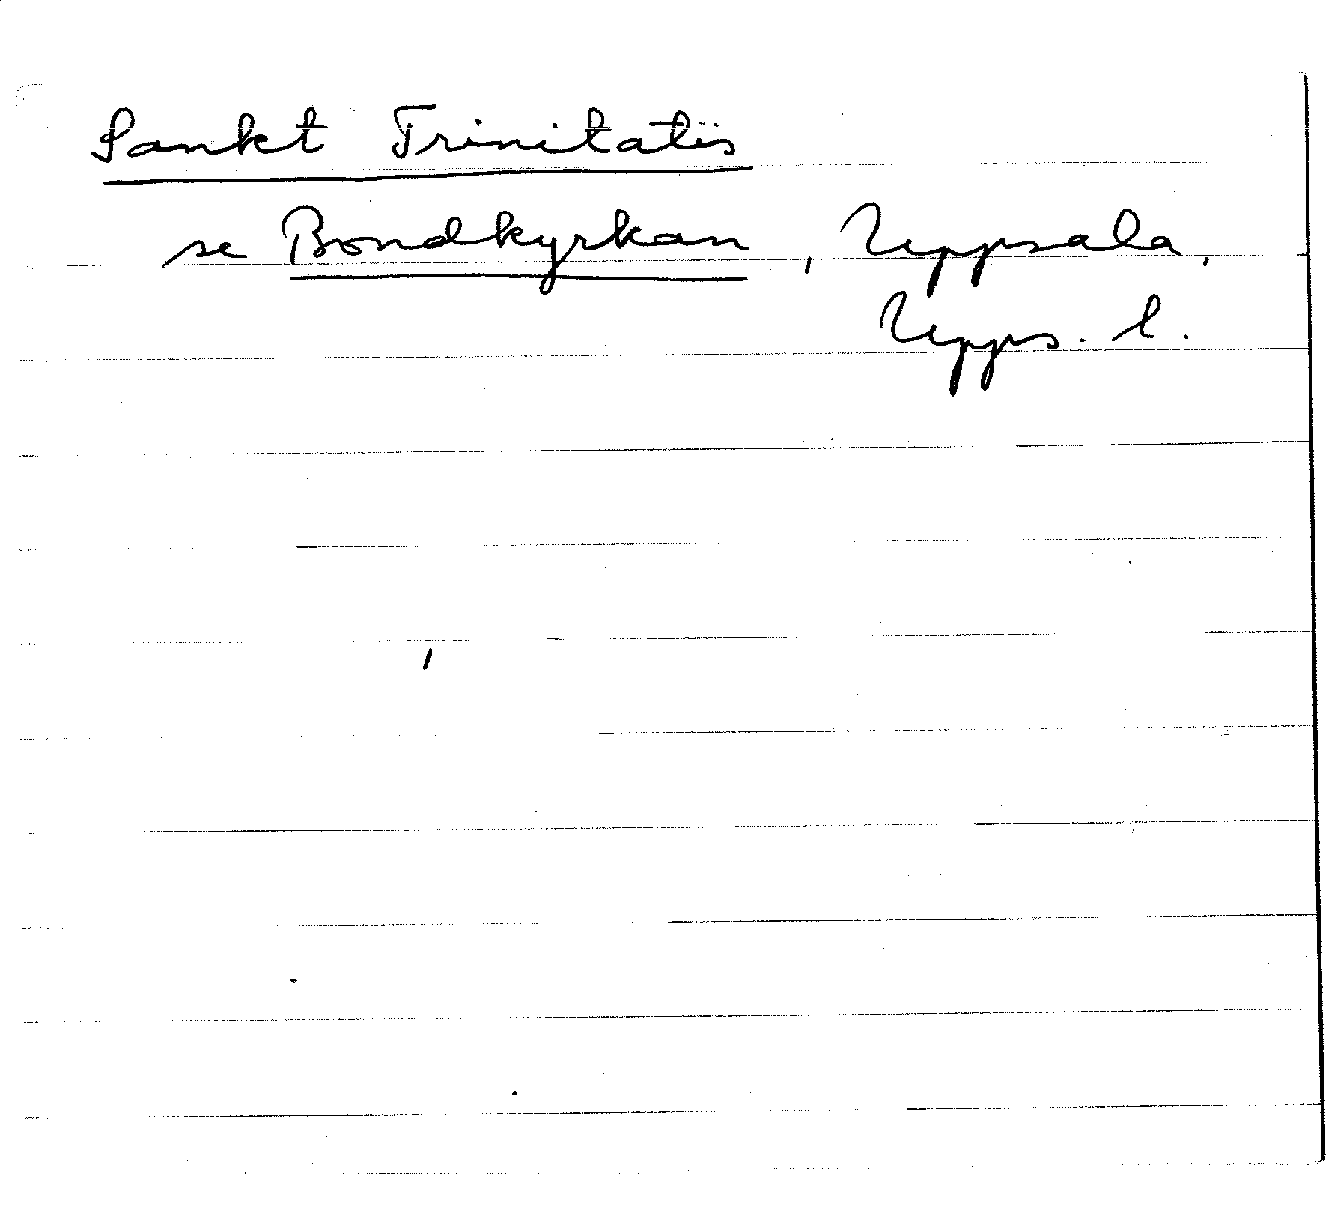 Sankt Trinitatis
se Bondkyrkan, Uppsala,
Upps. l.